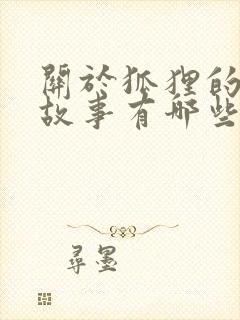 關於狐狸的
故事有哪些
尋墨